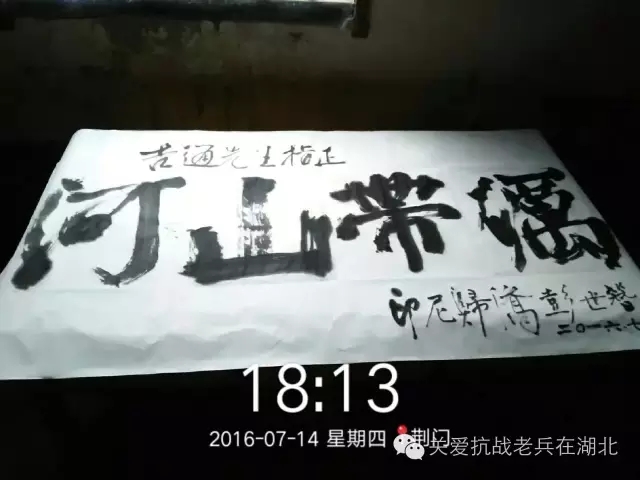 苦通先生指正
河山带礪
印尼歸僑彭世
二〇一六.七
18:13
2016-07-14 星期四 荆门
关爱抗战老兵在湖北